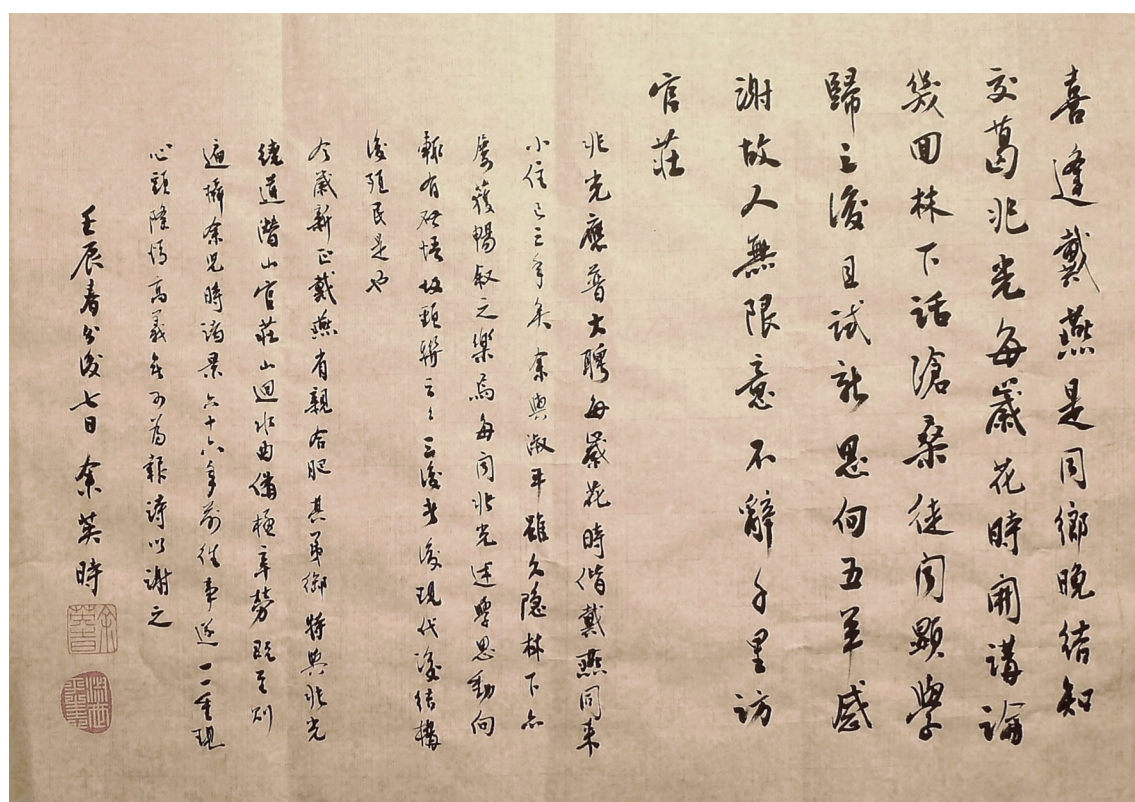 喜逢戴燕是同鄉晚結知
交葛兆光每歲花時開講論
幾回林下話滄桑徒聞顯學
歸三後且試新思向五羊感
謝故人無限意不辭千里訪
官莊
兆光應普大聘每歲花時偕戴燕同來
小住已三年矣余與淑平雖久隱林下亦
屢獲暢敘之樂焉每聞兆光述學思動向
輒有啟悟故頸聯云云三後者後現代後結構
後殖民是也
今歲新正戴燕省親合肥其弟鄉特與兆光
繞道潛山官莊山迴水曲備極辛勞既至則
遍攝余兒時諸景六十六年前往事遂一一重現
心頭隆情高義無可為報詩以謝之
壬辰春分後七日 余英時
余英時